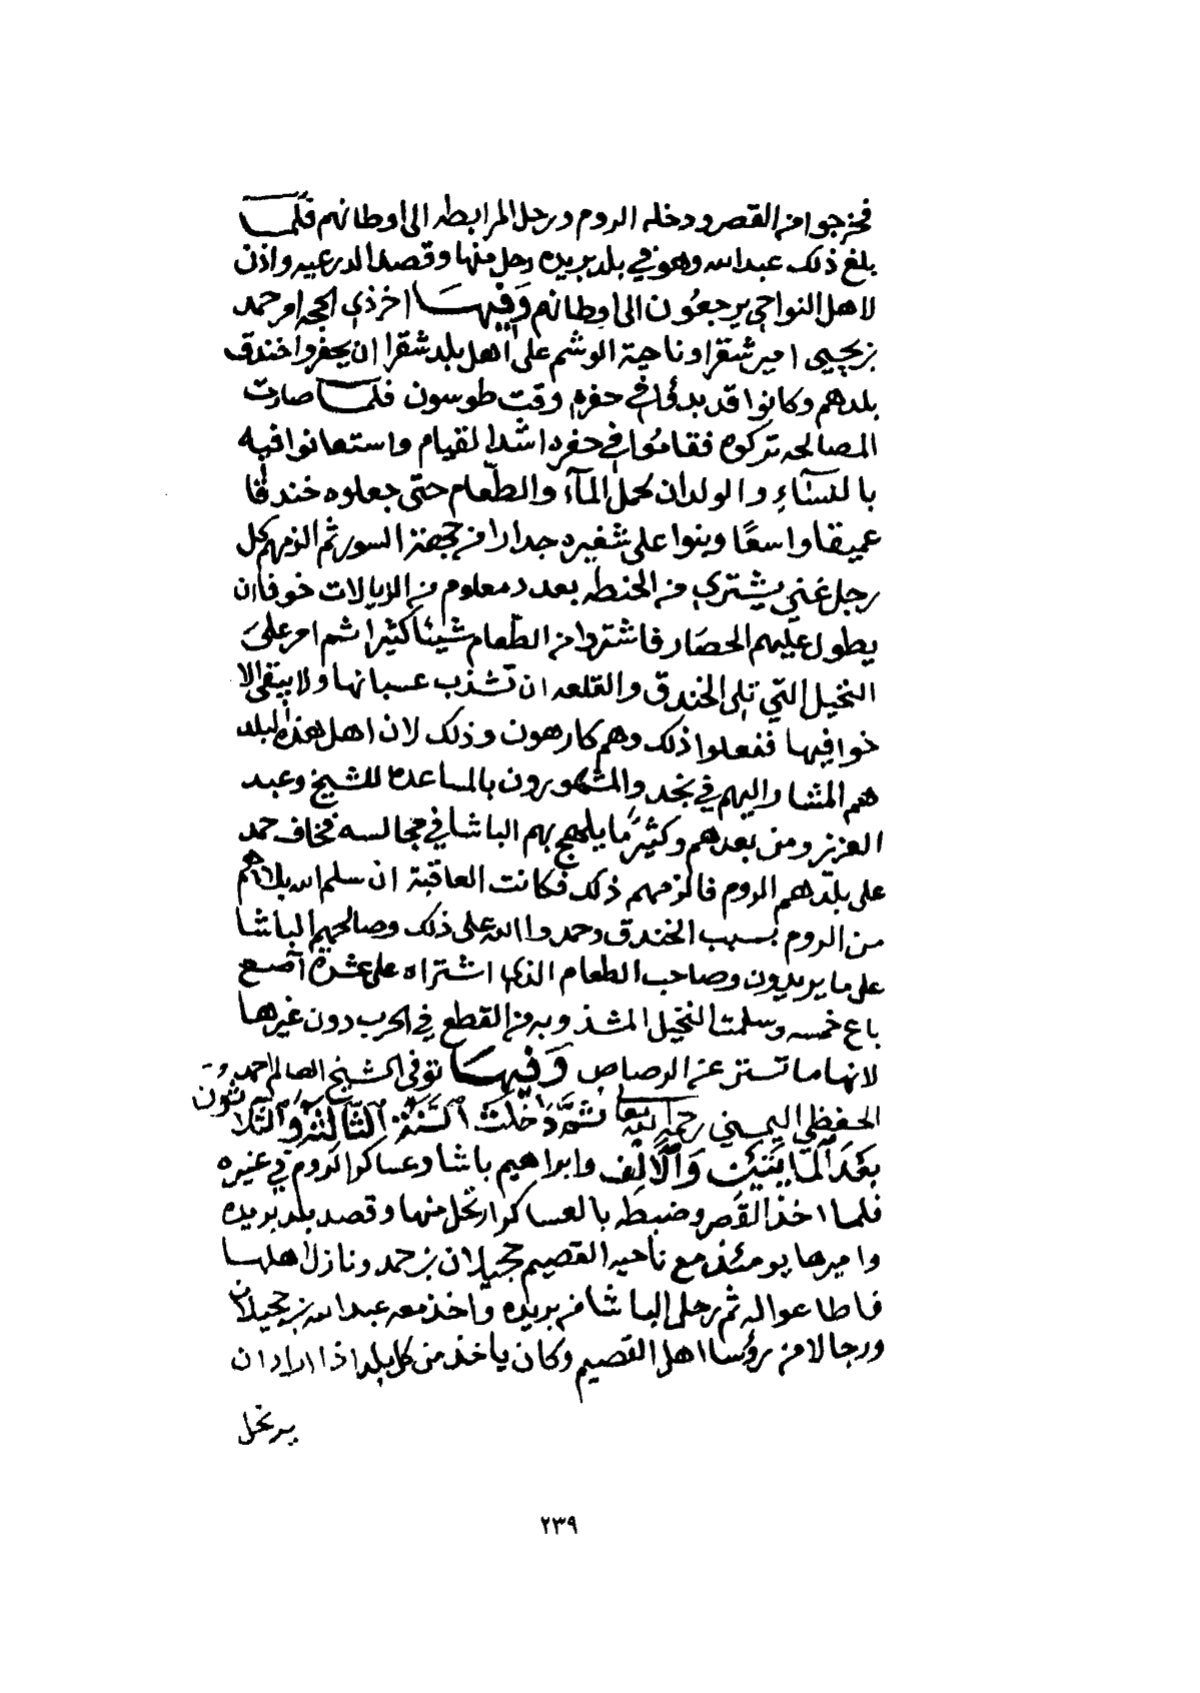 فخرجوا من القصر ودخله الروم ورحل المرابطه الى اوطانهم فلما
بلغ ذلك عبدالله وهو في بلد بريده رحل منها وقصد الدرعيه واذن
لاهل النواحي يرجعون الى اوطانهم وفيها اخر ذي الحجه امر حمد
بن يحيى امير شقرا وناحية الوشم على اهل بلد شقرا ان يحفروا خندق
بلدهم وكانوا قد بدئوا في حفره وقت طوسون فلما صارت
المصالحه تركوه فقاموا في حفره اشد القيام واستعانوا فيه
بالنسآء والولدان لحمل المآء والطعام حتى جعلوه خندقا
عميقا واسعًا وبنوا على شفيره جدارا من جهة السور ثم الزمهم كل
رجل غني يشتري من الحنطه بعدد معلوم من الريالات خوفا ان
يطول عليهم الحصار فاشتروا من الطعام شيئا كثيرا ثم امر على
النخيل التي تلي الخندق والقلعه ان تشذب عسبانها ولا يبقى الا
خوافيها ففعلوا ذلك وهم كارهون وذلك لان اهل هذه البلد
هم المشار اليهم في نجد والمشهورون بالمساعده للشيخ وعبد
العزيز ومن بعدهم وكثيرًا ما يلهج بهم الباشا في مجالسه فخاف حمد
على بلدهم الروم فالزمهم ذلك فكانت العاقبة ان سلم الله بلادهم
من الروم بسبب الخندق وحمدوا الله على ذلك وصالحهم الباشا
على ما يريدون وصاحب الطعام الذي اشتراه على عشرة آصع
باع خمسه وسلمت النخيل المشذوبه من القطع في الحرب دون غيرها
لانها ما تستر عن الرصاص وفيها توفى الشيخ العالم احمد
الحفظي اليمني رحمه الله تعالى ثم دخلت السنة الثالثة والثلاثون
بعد المايتين والالف وابراهيم باشا وعساكر الروم في عنيزه
فلما اخذ القصر وضبطه بالعساكر ارتحل منها وقصد بلد بريده
واميرها يومئذ مع ناحيه القصيم حجيلان بن حمد ونازل اهلها
فاطاعوا له ثم رحل الباشا من بريده واخذ معه عبدالله بن حجيلان
ورجالا من رؤسا اهل القصيم وكان ياخذ من كل بلد اذا اراد ان
يرتحل
٢٣٩